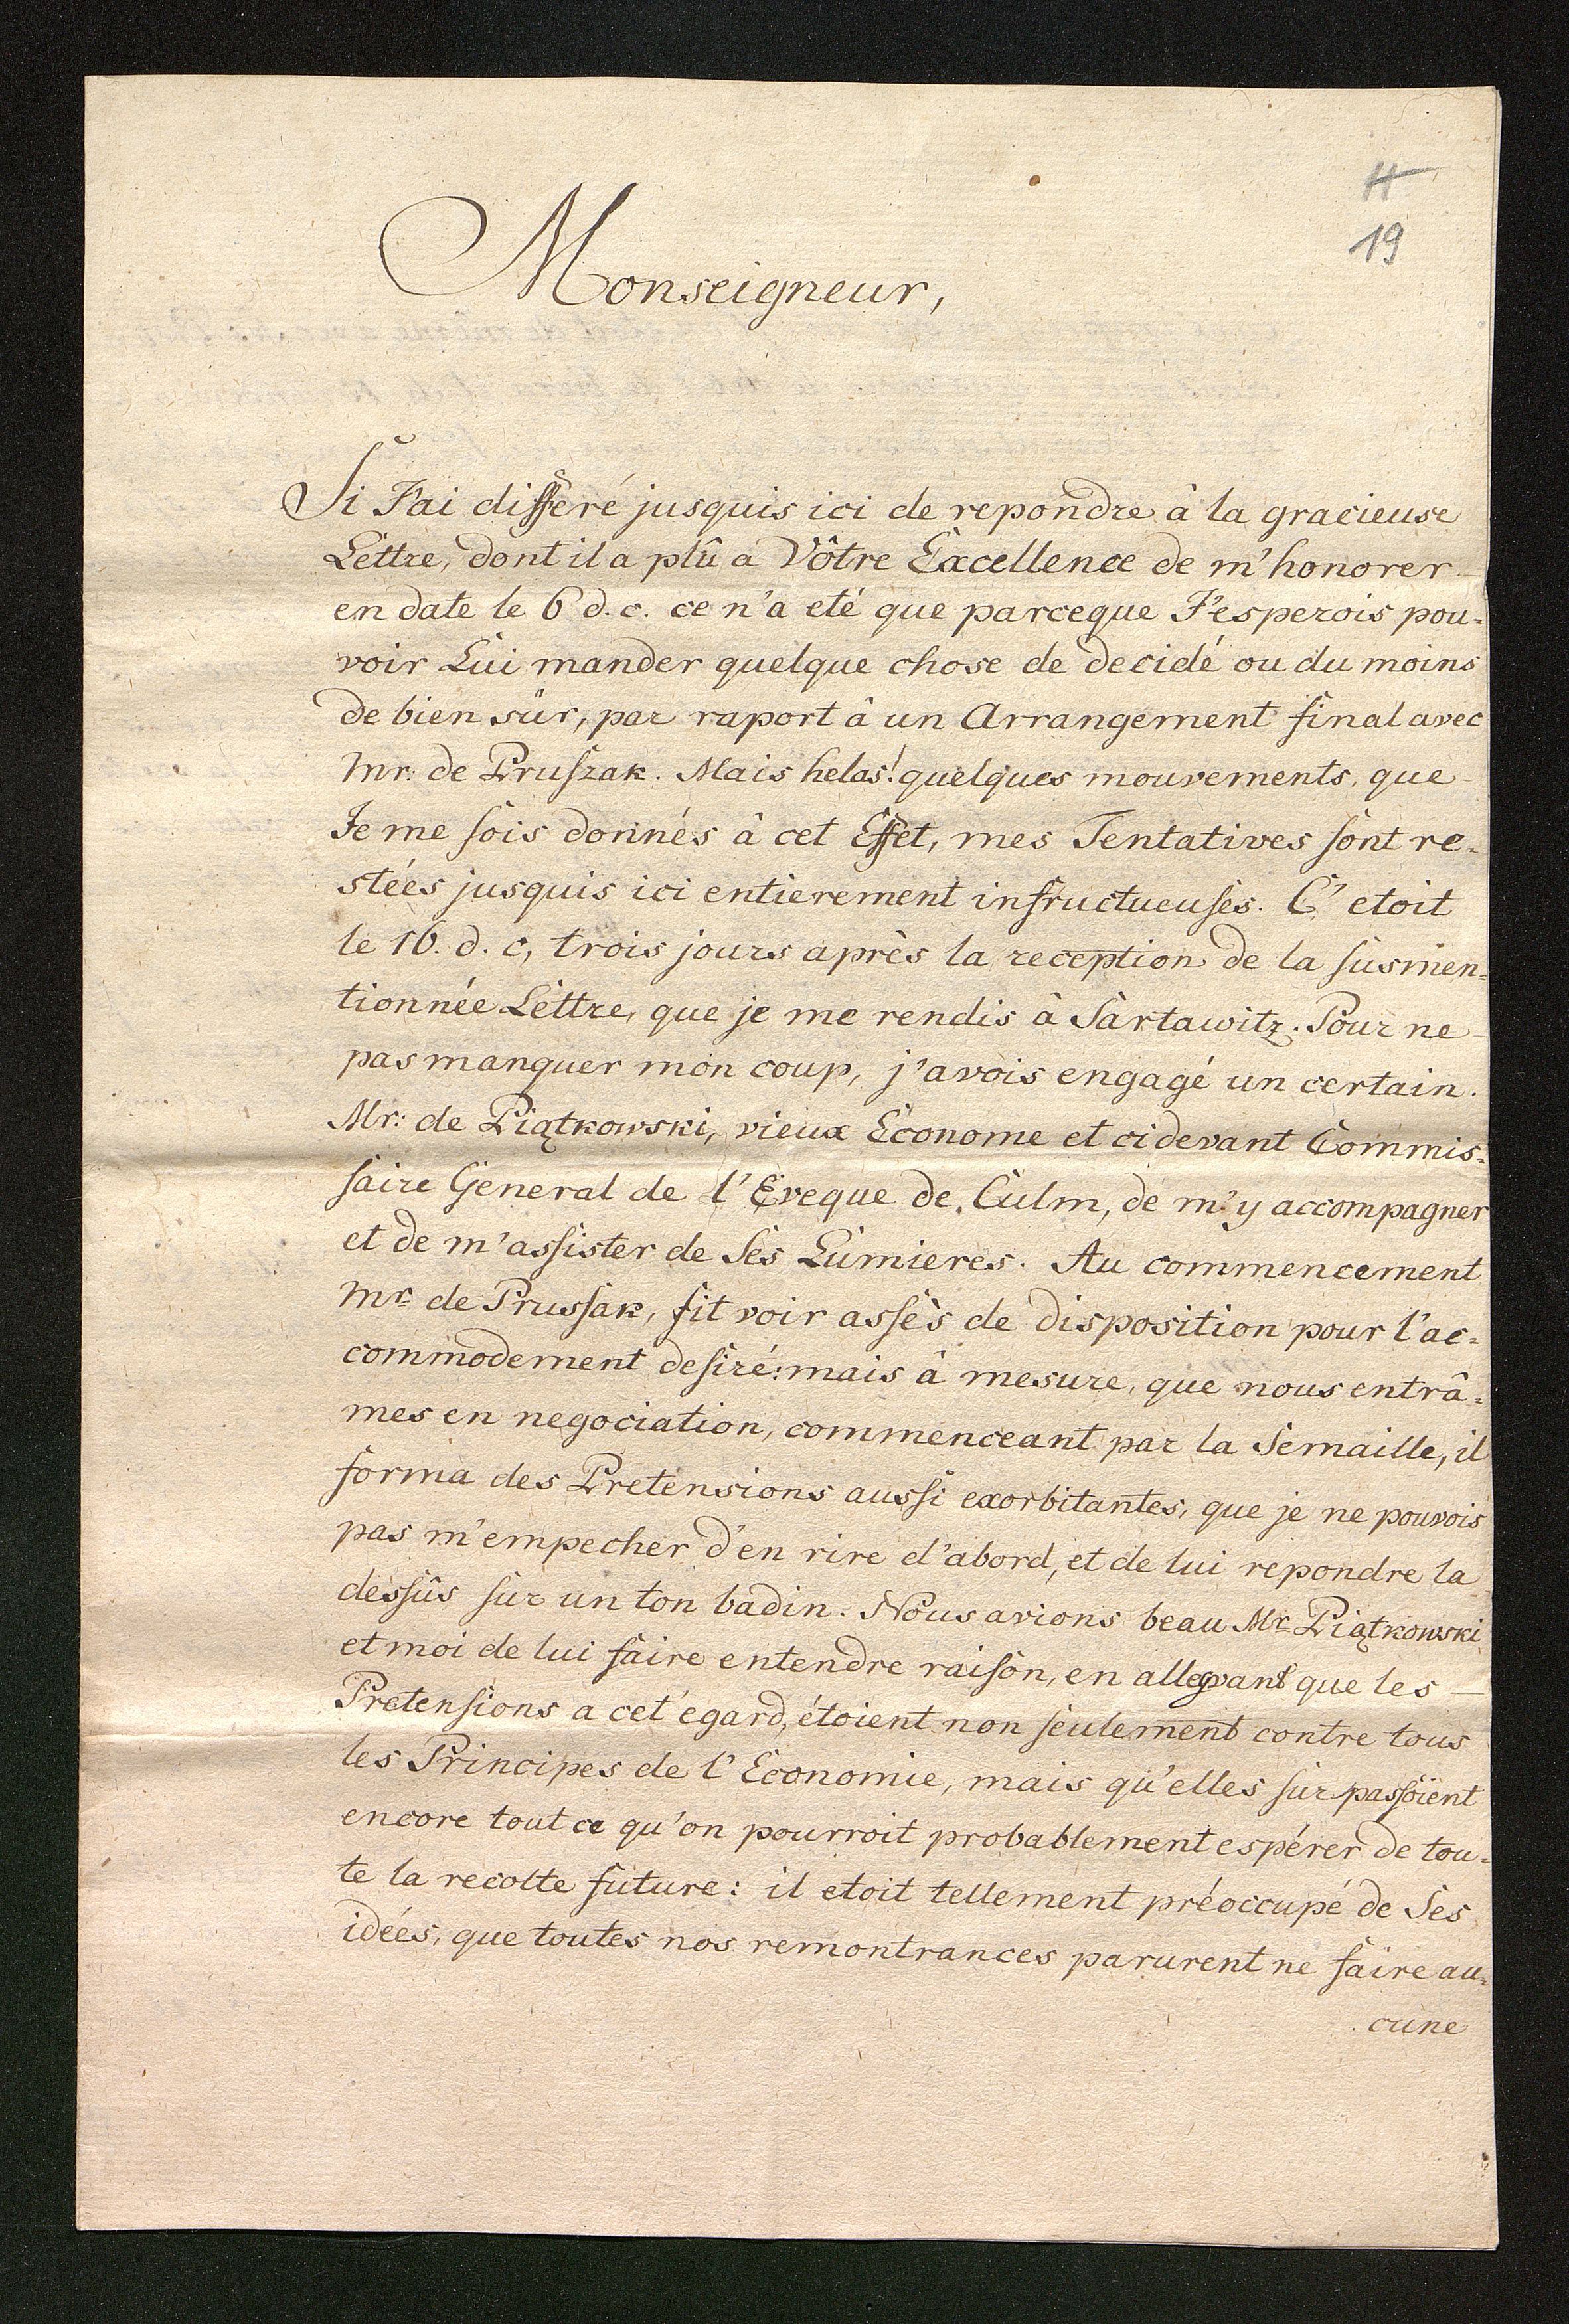 19
Monseigneur,
Si J'ai differé jusquis ici de repondre à la gracieuse
Lettre, dont il a plû a Vôtre Excellence de m'honorer
en date le 6 d. c. ce n'a eté que parceque J'esperois pou-
voir Lui mander quelque chose de decidé ou du moins
de bien sûr, par raport â un Arrangement final avec
Mr: de Pruszak. Mais helas! quelques mouvements, que
Je me sois donnés â cet Effet, mes Tentatives sont re-
stées jusquis ici entierement infructueuses. C'etoit
le 16. d. c, trois jours après la reception de la susmen-
tionnée Lettre, que je me rendis à Sartawitz. Pour ne
pas manquer mon coup, j'avois engagé un certain
Mr: de Piątkowski, vieux Econome et cidevant Commis-
saire General de l'Eveque de Culm, de m'y accompagner
et de m'assister de Ses Lumieres. Au commencement
Mr: de Prussak, fit voir assès de disposition pour l'ac-
commodement desiré: mais â mesure, que nous entrâ-
mes en negociation, commenceant par la Semaille, il
forma des Pretensions aussi exorbitantes, que je ne pouvois
pas m'empecher d'en rire d'abord, et de lui repondre la
dessûs sur un ton badin. Nous avions beau Mr: Piątkowski
et moi de lui faire entendre raison, en allegant que les
Pretensions a cet'egard, étoient non seulement contre tous
les Principes de l'Economie, mais qu'elles surpassoient
encore tout ce qu'on pourroit probablement espérer de tou-
te la recolte future: il etoit tellement préoccupé de Ses
idées, que toutes nos remontrances parurent ne faire au-
cune